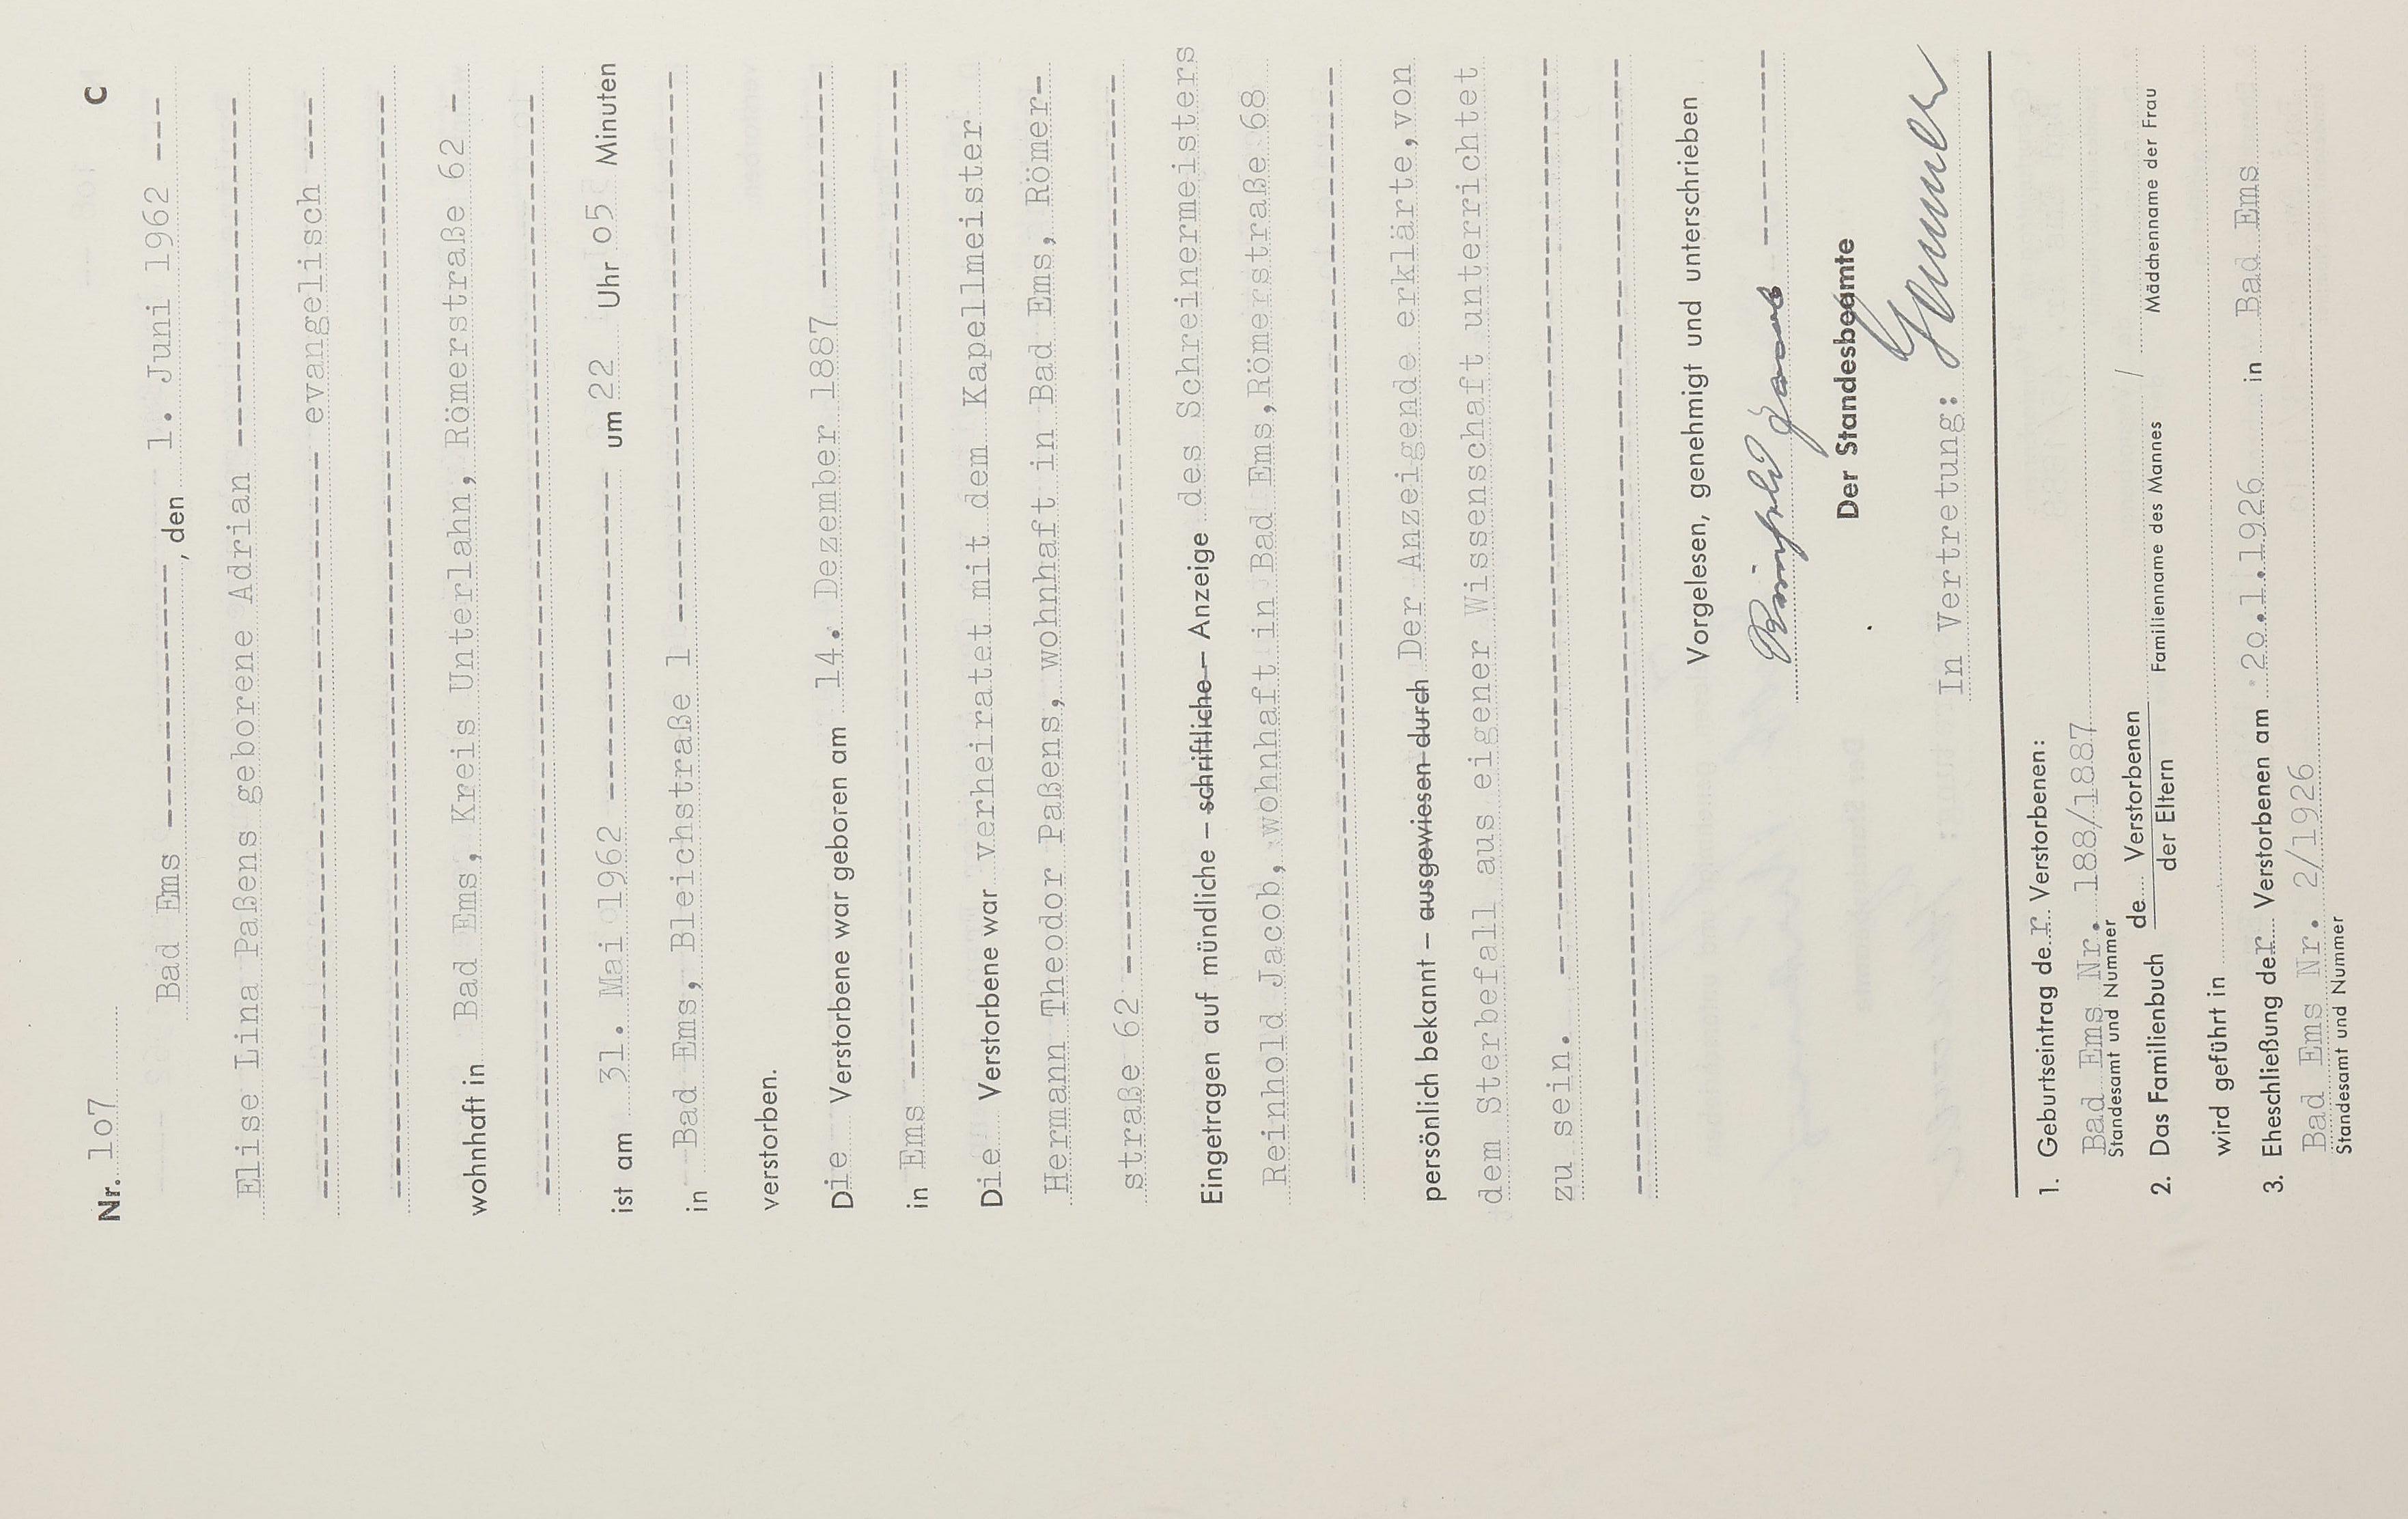 Nr. 1o7 C
Bad Ems ------------, den 1. Juni 1962 ---
Elise Lina Paßens geborene Adrian ----------------
------------------------------------ evangelisch ---
wohnhaft in Bad Ems, Kreis Unterlahn, Römerstraße 62 -
ist am 31. Mai 1962 --------------- um 22 Uhr 05 Minuten
in Bad Ems, Bleichstraße 1 --------------------------
verstorben.
Die Verstorbene war geboren am 14. Dezember 1887 ----------
in Ems ----------------------------------------------
Die Verstorbene war verheiratet mit dem Kapellmeister
Hermann Theodor Paßens, wohnhaft in Bad Ems, Römer-
straße 62 -------------------------------------------
Eingetragen auf mündliche – schriftliche – Anzeige des Schreinermeisters
Reinhold Jacob, wohnhaft in Bad Ems,Römerstraße 68
persönlich bekannt – ausgewiesen durch Der Anzeigende erklärte,von
dem Sterbefall aus eigener Wissenschaft unterrichtet
zu sein. --------------------------------------------
Vorgelesen, genehmigt und unterschrieben
Reinhold Jacob ----------
Der Standesbeamte
In Vertretung:
1. Geburtseintrag der Verstorbenen:
Bad Ems Nr. 188/1887
Standesamt und Nummer
2. Das Familienbuch de Verstorbenen / der Eltern /
Familienname des Mannes Mädchenname der Frau
wird geführt in
3. Eheschließung der Verstorbenen am 2o.1.1926 in Bad Ems
Bad Ems Nr. 2/1926
Standesamt und Nummer